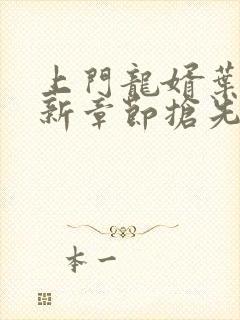 上門龍婿葉
新章節搶先
本一